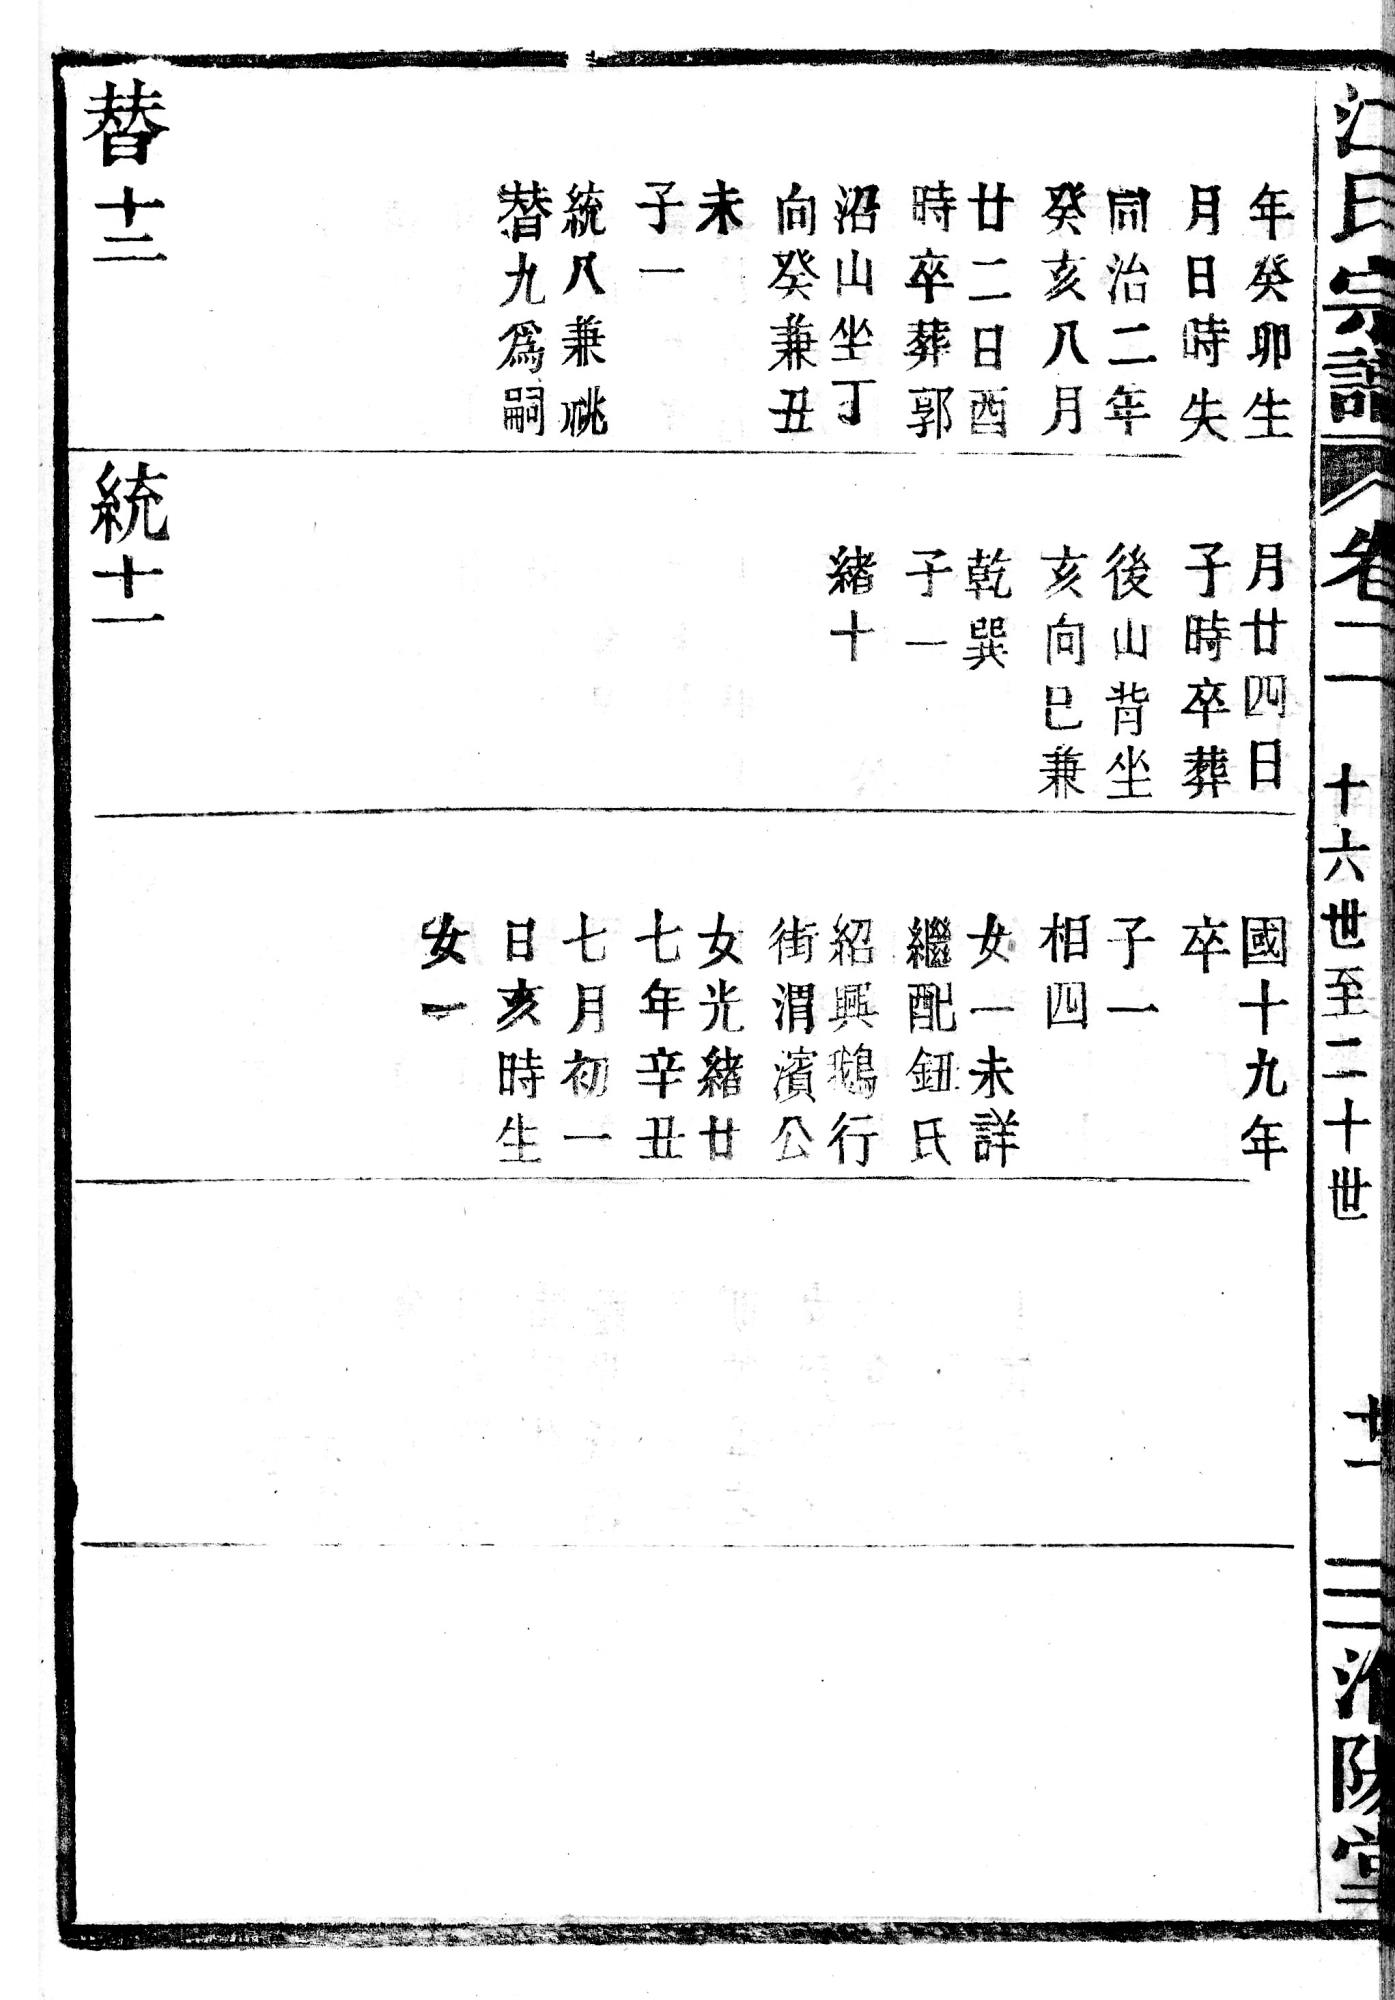 江氏宗譜
卷二
十六世至二十世
廿一
淮陽堂
年癸卯生
月日時失
同治二年
癸亥八月
廿二日酉
時卒葬郭
沿山坐丁
向癸兼丑
未
子一
統八兼祧
替九爲嗣
替十二
月廿四日
子時卒葬
後山背坐
亥向巳兼
乾巽
子一
緒十
統十一
國十九年
卒
子一
相四
女一未詳
繼配鈕氏
紹興鵝行
街渭濱公
女光緒廿
七年辛丑
七月初一
日亥時生
女一